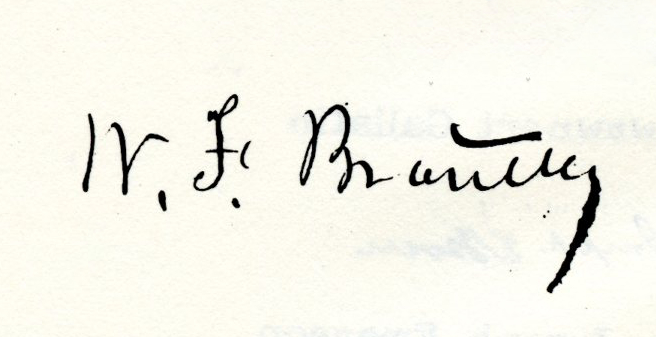 W. F. Brantley